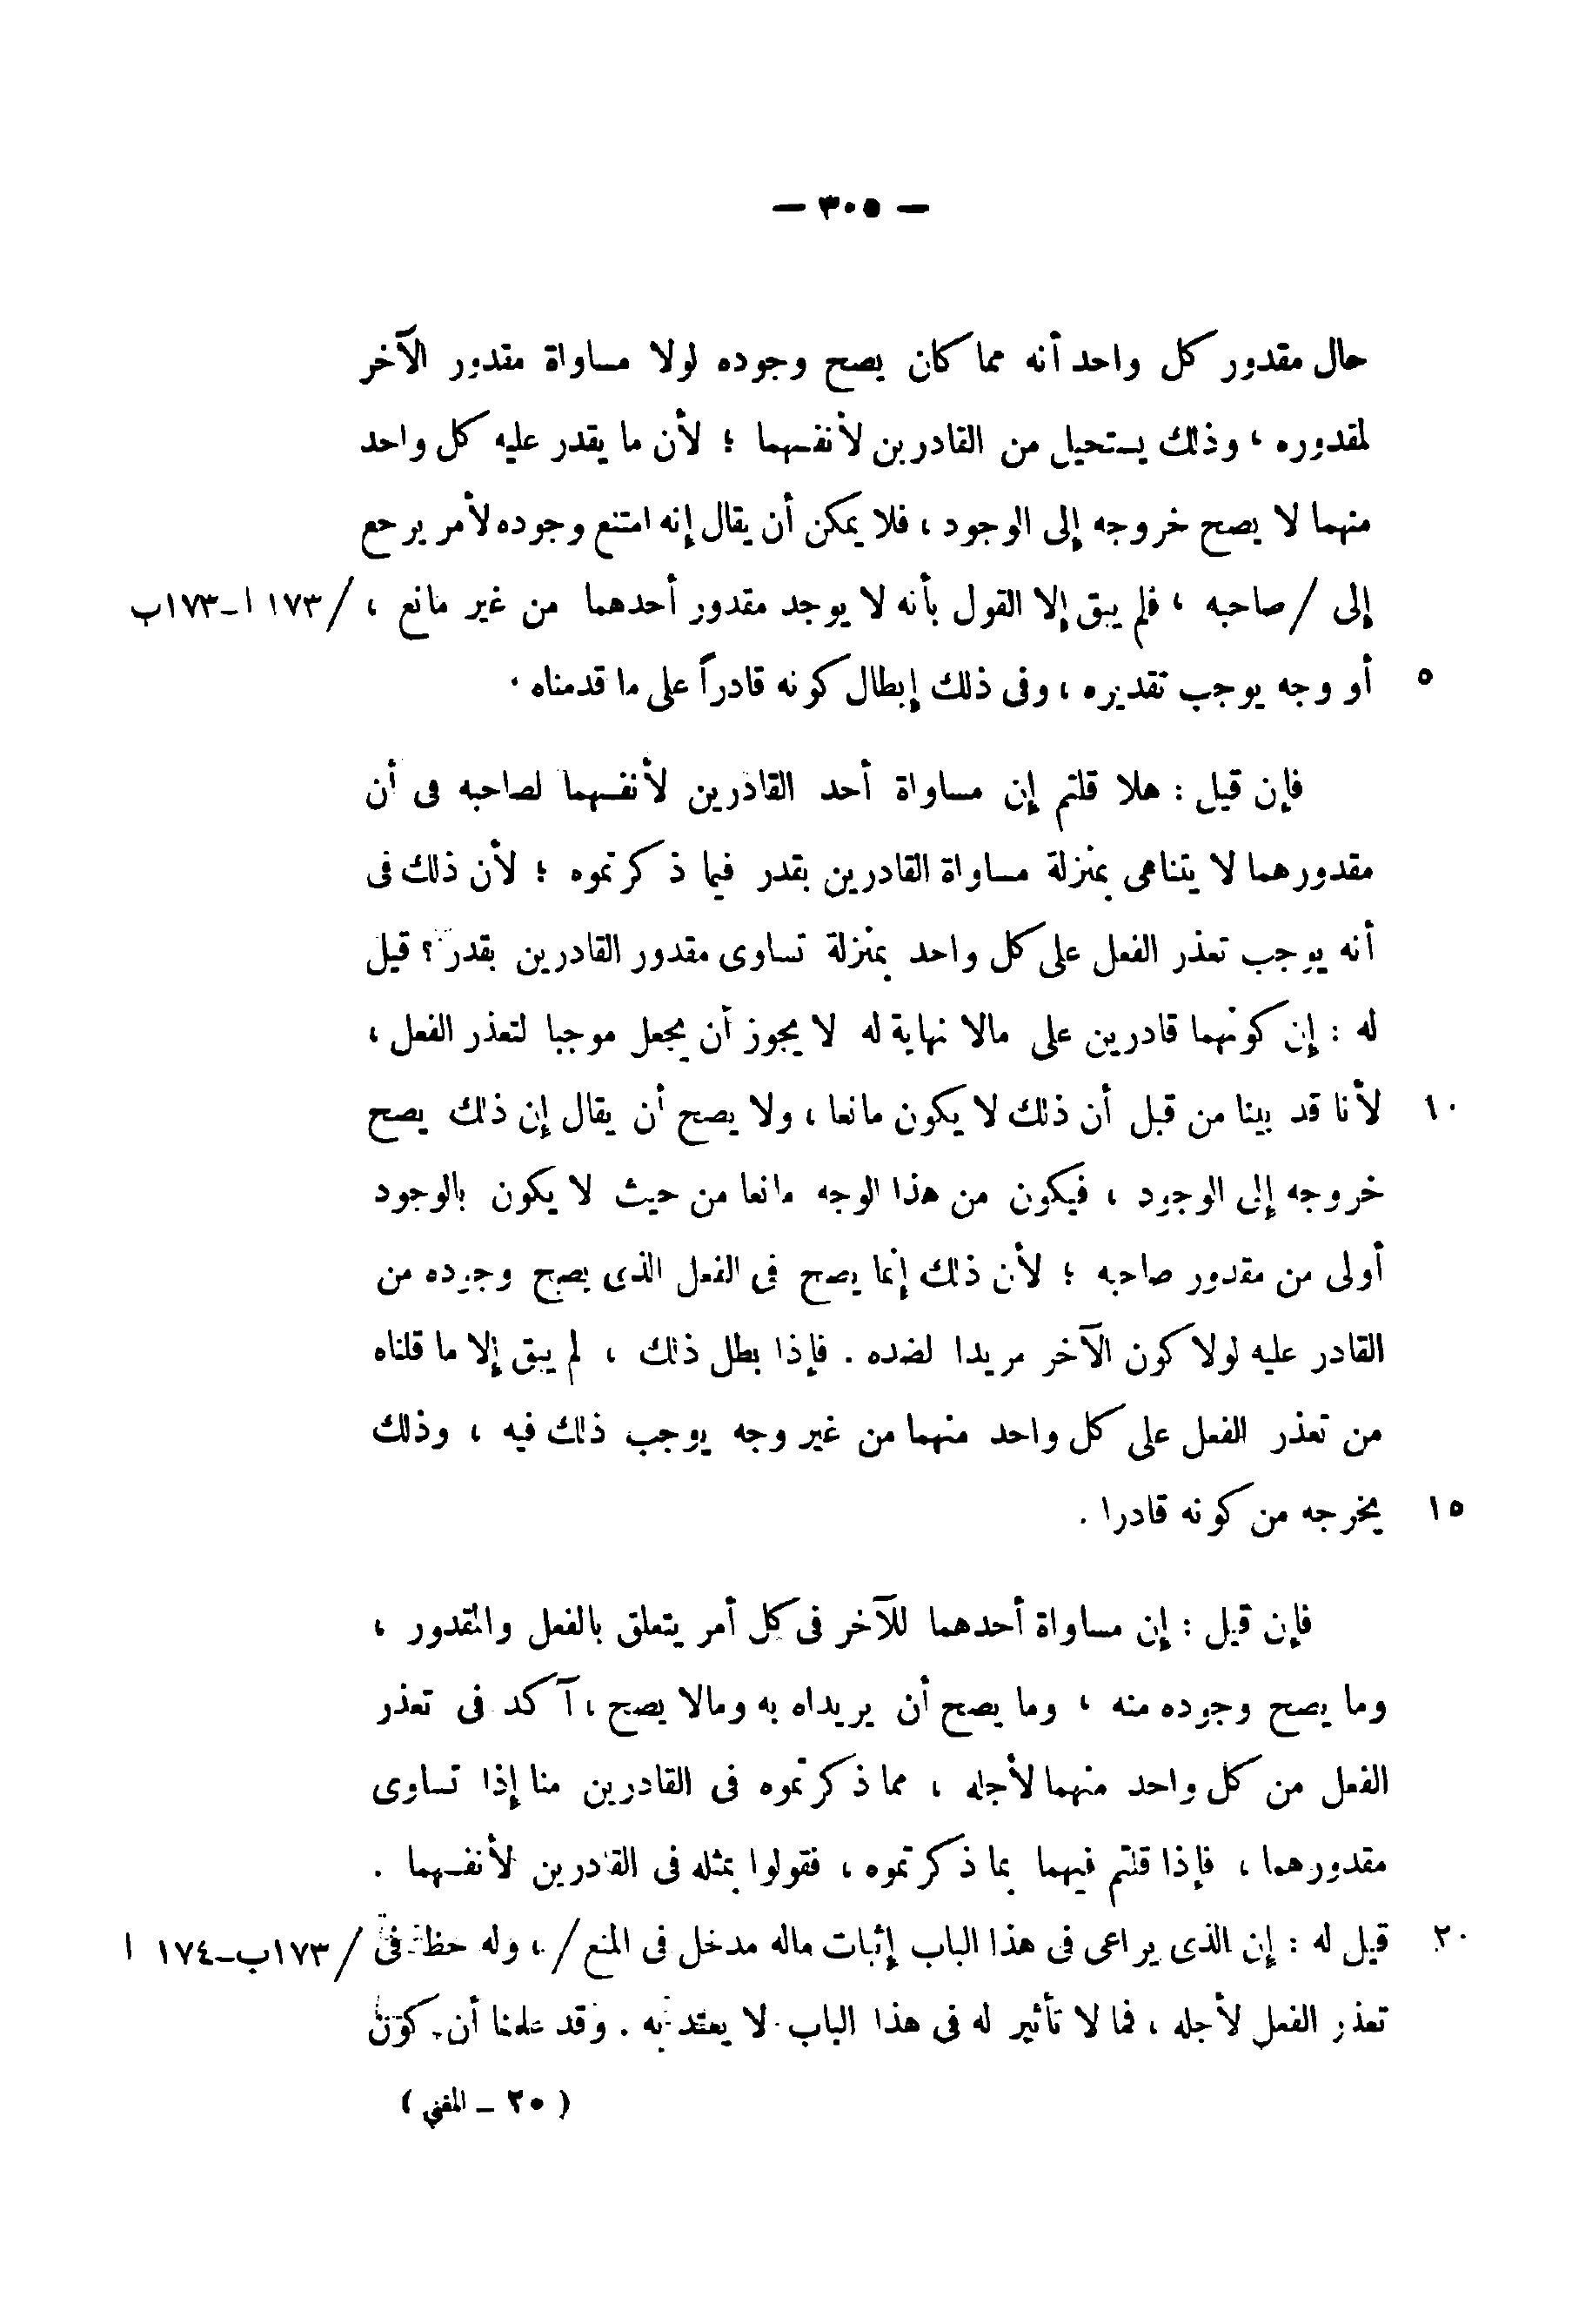 — ٣٠٥ —
حال مقدور كل واحد أنه مما كان يصح وجوده لولا مساواة مقدور الآخر
لمقدوره ، وذلك يستحيل من القادرين لأنفسهما ؛ لأن ما يقدر عليه كل واحد
منهما لا يصح خروجه إلى الوجود ، فلا يمكن أن يقال إنه امتنع وجوده لأمر يرجع
إلى / صاحبه ، فلم يبق إلا القول بأنه لا يوجد مقدور أحدهما من غير مانع ، / ١٧٣ ا ـ ١٧٣ب
٥ أو وجه يوجب تقديره ، وفى ذلك إبطال كونه قادراً على ما قدمناه .
فإن قيل : هلا قلتم إن مساواة أحد القادرين لأنفسهما لصاحبه فى أن
مقدورهما لا يتناهى بمنزلة مساواة القادرين بقدر فيما ذكرتموه ؛ لأن ذلك فى
أنه يوجب تعذر الفعل على كل واحد بمنزلة تساوى مقدور القادرين بقدر ؟ قيل
له : إن كونهما قادرين على مالا نهاية له لا يجوز أن يجعل موجبا لتعذر الفعل ،
١٠ لأنا قد بينا من قبل أن ذلك لا يكون مانعا ، ولا يصح أن يقال إن ذلك يصح
خروجه إلى الوجود ، فيكون من هذا الوجه مانعا من حيث لا يكون بالوجود
أولى من مقدور صاحبه ؛ لأن ذلك إنما يصح فى الفعل الذى يصح وجوده من
القادر عليه لولا كون الآخر مريدا لضده . فإذا بطل ذلك ، لم يبق إلا ما قلناه
من تعذر الفعل على كل واحد منهما من غير وجه يوجب ذلك فيه ، وذلك
١٥ يخرجه من كونه قادرا .
فإن قيل : إن مساواة أحدهما للآخر فى كل أمر يتعلق بالفعل والمقدور ،
وما يصح وجوده منه ، وما يصح أن يريداه به ومالا يصح ، آكد فى تعذر
الفعل من كل واحد منهما لأجله ، مما ذكرتموه فى القادرين منا إذا تساوى
مقدورهما ، فإذا قلتم فيهما بما ذكرتموه ، فقولوا بمثله فى القادرين لأنفسهما .
٢٠ قيل له : إن الذى يراعى فى هذا الباب إثبات ماله مدخل فى المنع / ، وله حظ فى / ١٧٣ب ـ ١٧٤ ا
تعذر الفعل لأجله ، فما لا تأثير له فى هذا الباب لا يعتد به . وقد علمنا أن كون
( ٢٠ ـ المغني )